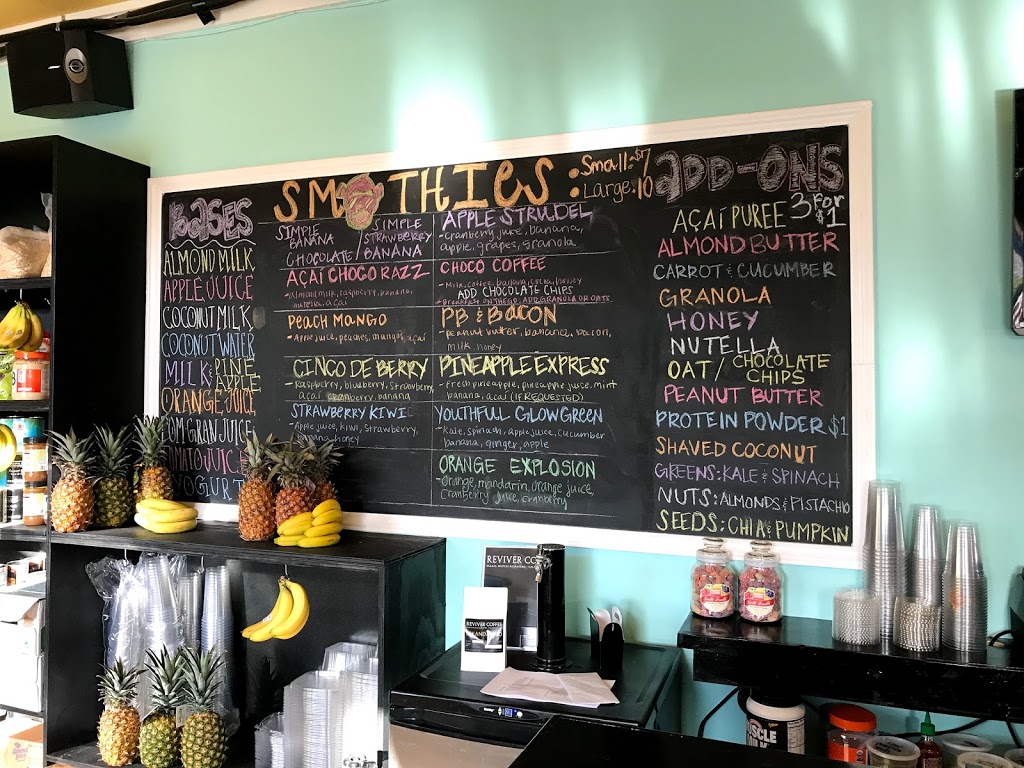 SMOTHIES: Small: $7
Large: 10
BASES
ALMOND MILK
APPLE JUICE
COCONUT MILK
COCONUT WATER
MILK & PINE
APPLE
ORANGE JUICE
POM GRAN JUICE
TOMATO JUICE
YOGURT
SIMPLE
BANANA / SIMPLE
STRAWBERRY
CHOCOLATE BANANA
AÇAÍ CHOCO RAZZ
- Almond milk, raspberry, banana,
nutella, açaí
PEACH MANGO
- Apple juice, peaches, mango, açaí
CINCO DE BERRY
- Raspberry, blueberry, strawberry
açaí, cranberry, banana
STRAWBERRY KIWI
- Apple juice, kiwi, strawberry,
banana, honey
APPLE STRUDEL
- cranberry juice, banana,
apple, grapes, granola
CHOCO COFFEE
- Milk, coffee, banana, cocoa, honey
ADD CHOCOLATE CHIPS
- Breakfast on the go: ADD GRANOLA OR OATS
PB & BACON
- peanut butter, banana, bacon,
milk, honey
PINEAPPLE EXPRESS
- Fresh pineapple, pineapple juice, mint
banana, açaí (IF REQUESTED)
YOUTHFUL GLOW GREEN
- Kale, spinach, apple juice, cucumber
banana, ginger, apple
ORANGE EXPLOSION
- Orange, mandarin, orange juice,
cranberry juice, cranberry
ADD-ONS
3 FOR
$1
AÇAÍ PUREE
ALMOND BUTTER
CARROT & CUCUMBER
GRANOLA
HONEY
NUTELLA
OAT / CHOCOLATE
CHIPS
PEANUT BUTTER
PROTEIN POWDER $1
SHAVED COCONUT
GREENS: KALE & SPINACH
NUTS: ALMONDS & PISTACHIO
SEEDS: CHIA & PUMPKIN
REVIVER CO
REVIVER COFFEE
MUSCLE
MILK